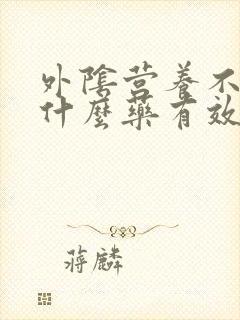 外陰营养不
什麼藥有效
蒋麟